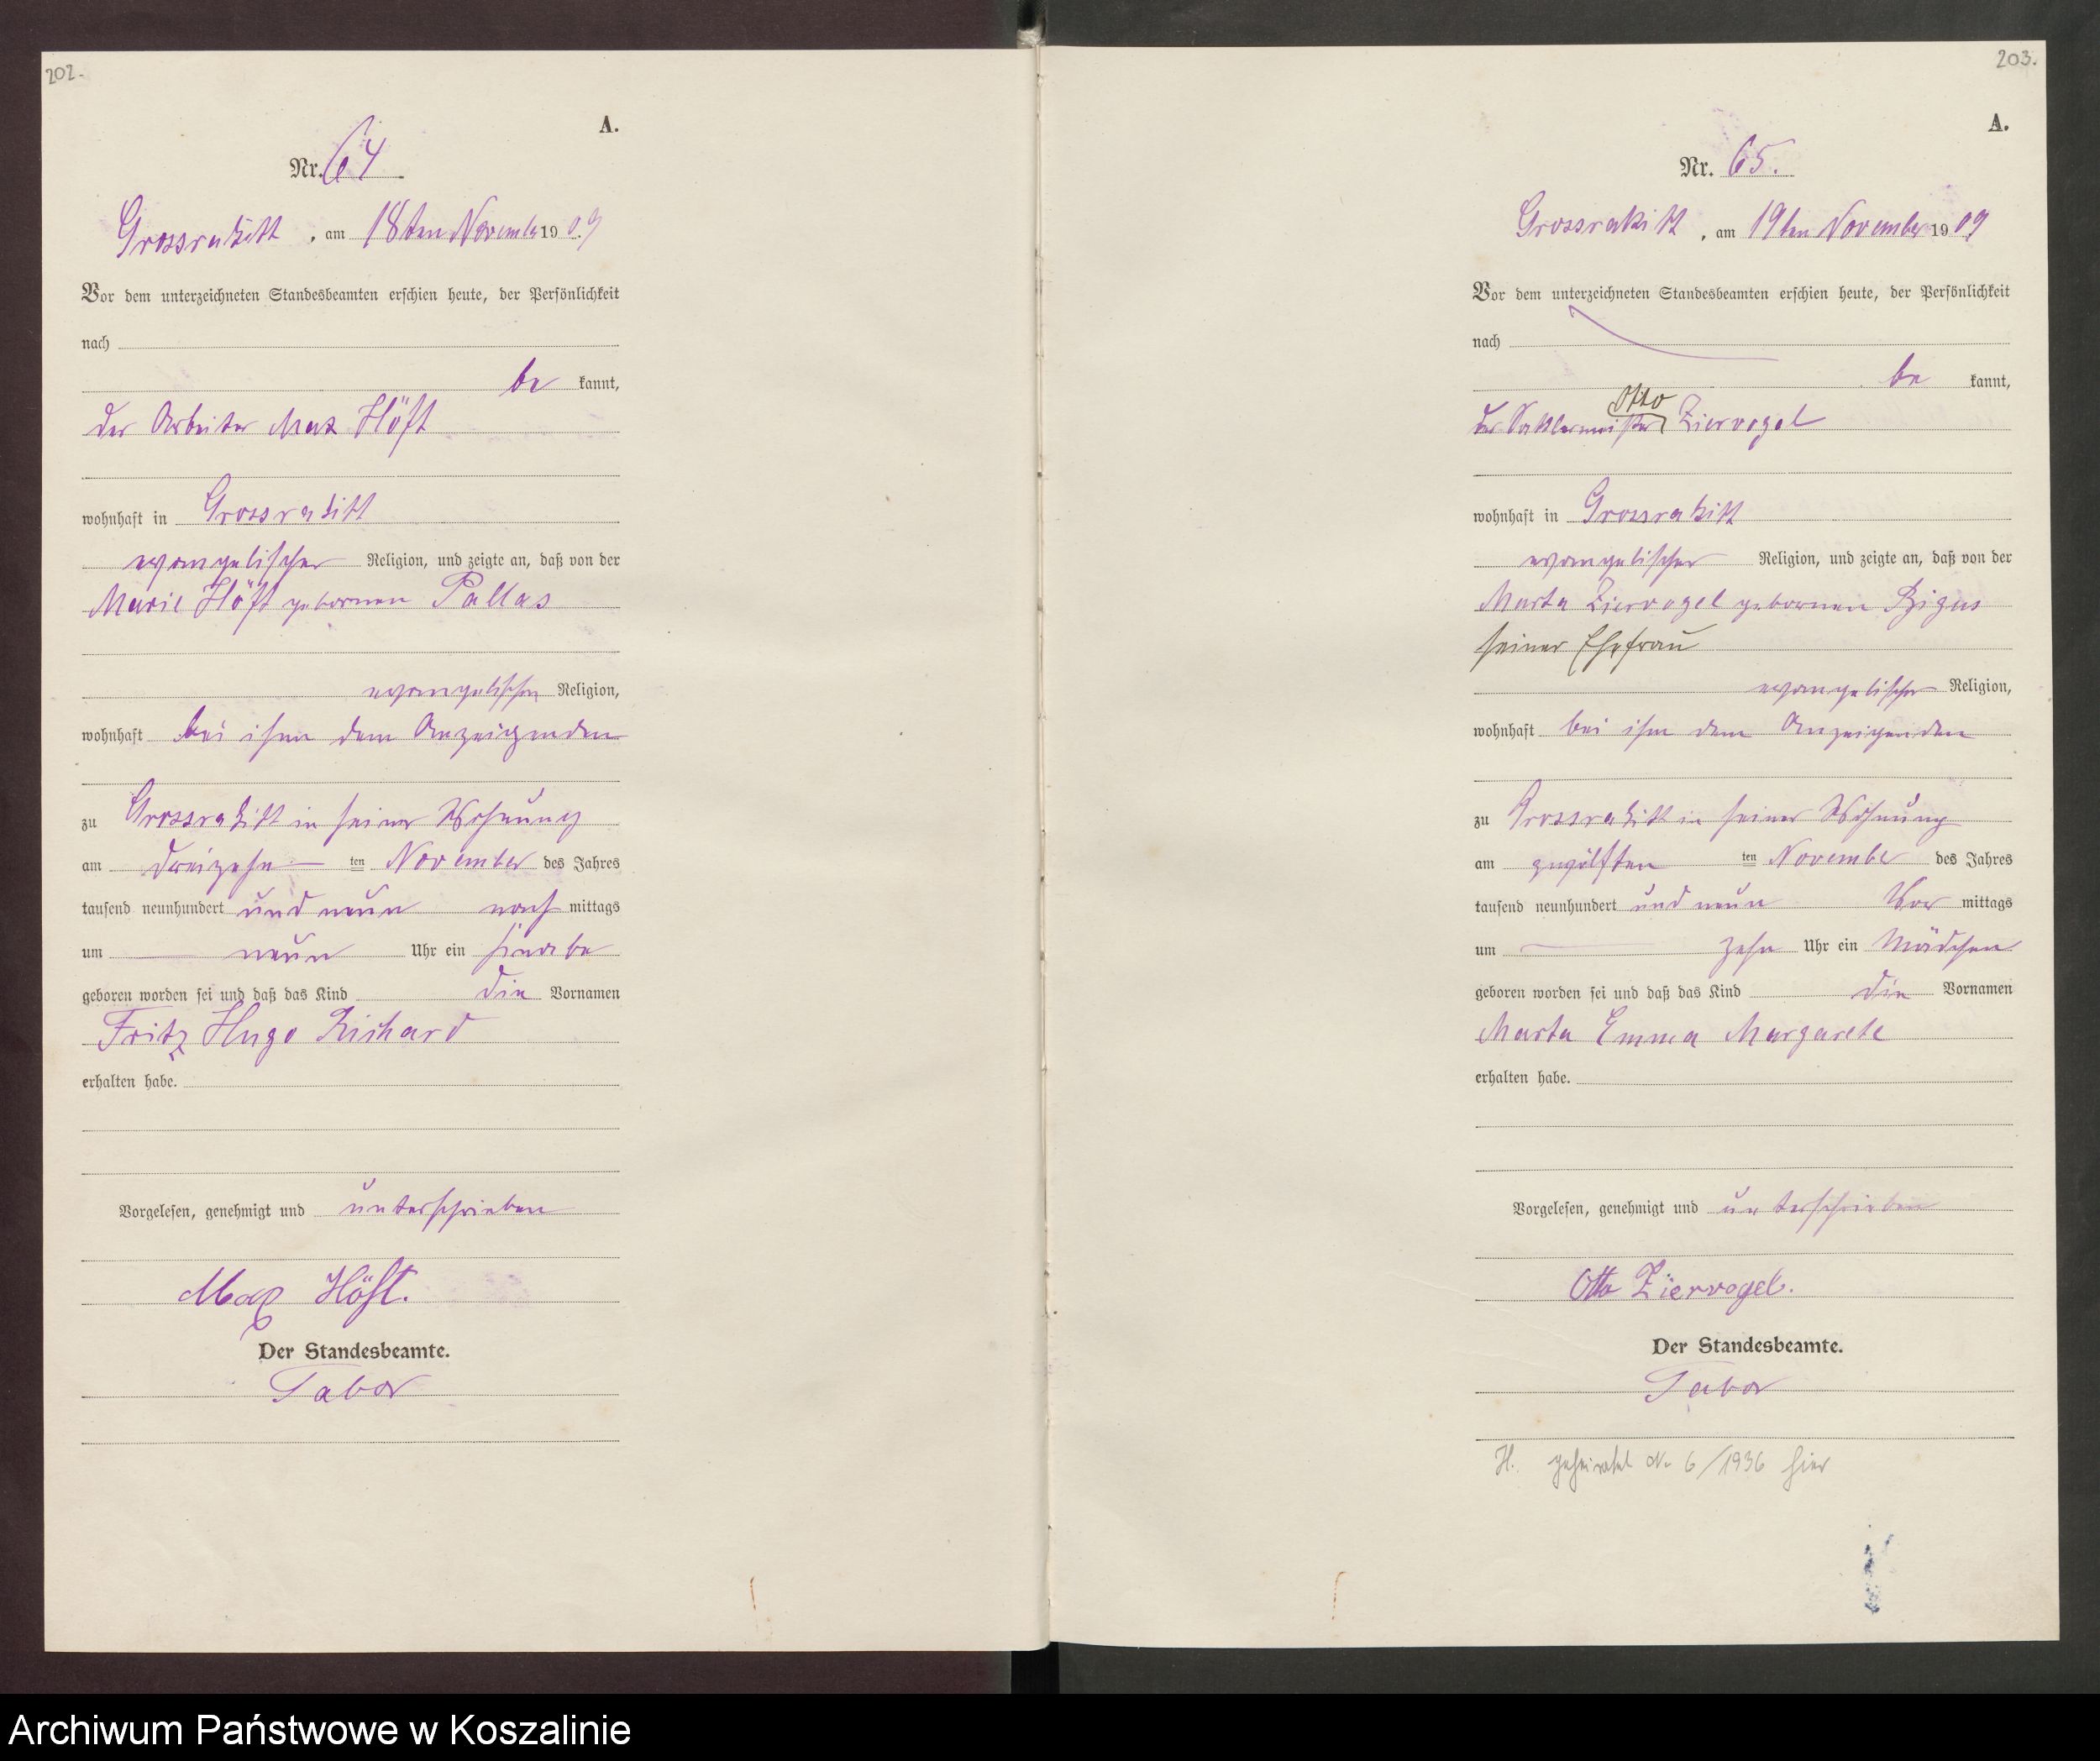 202.
A.
Nr. 64
Grossrakitt, am 18ten November 1909
Vor dem unterzeichneten Standesbeamten erschien heute, der Persönlichkeit
nach
be kannt,
der Arbeiter Max Höft
wohnhaft in Grossrakitt
evangelischer Religion, und zeigte an, daß von der
Marie Höft geborenen Pallas
evangelischen Religion,
wohnhaft bei ihm dem Anzeigenden
zu Grossrakitt in seiner Wohnung
am dreizehn ten November des Jahres
tausend neunhundert und neun nach mittags
um neun Uhr ein Knabe
geboren worden sei und daß das Kind die Vornamen
Fritz Hugo Richard
erhalten habe.
Vorgelesen, genehmigt und unterschrieben
Max Höft.
Der Standesbeamte.
Tabor
203.
A.
Nr. 65.
Grossrakitt, am 19ten November 1909
Vor dem unterzeichneten Standesbeamten erschien heute, der Persönlichkeit
nach
be kannt,
Otto
der Sattlermeister Ziervogel
wohnhaft in Grossrakitt
evangelischer Religion, und zeigte an, daß von der
Marta Ziervogel geborenen
seiner Ehefrau
evangelischer Religion,
wohnhaft bei ihm dem Anzeigenden
zu Grossrakitt in seiner Wohnung
am zwölften ten November des Jahres
tausend neunhundert und neun Vor mittags
um zehn Uhr ein Mädchen
geboren worden sei und daß das Kind die Vornamen
Marta Emma Margarete
erhalten habe.
Vorgelesen, genehmigt und unterschrieben
Otto Ziervogel.
Der Standesbeamte.
Tabor
H. geheiratet Nr 6/1936 hier
Archiwum Państwowe w Koszalinie